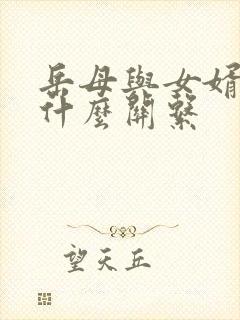 岳母與女婿
什麼關繫
望天丘